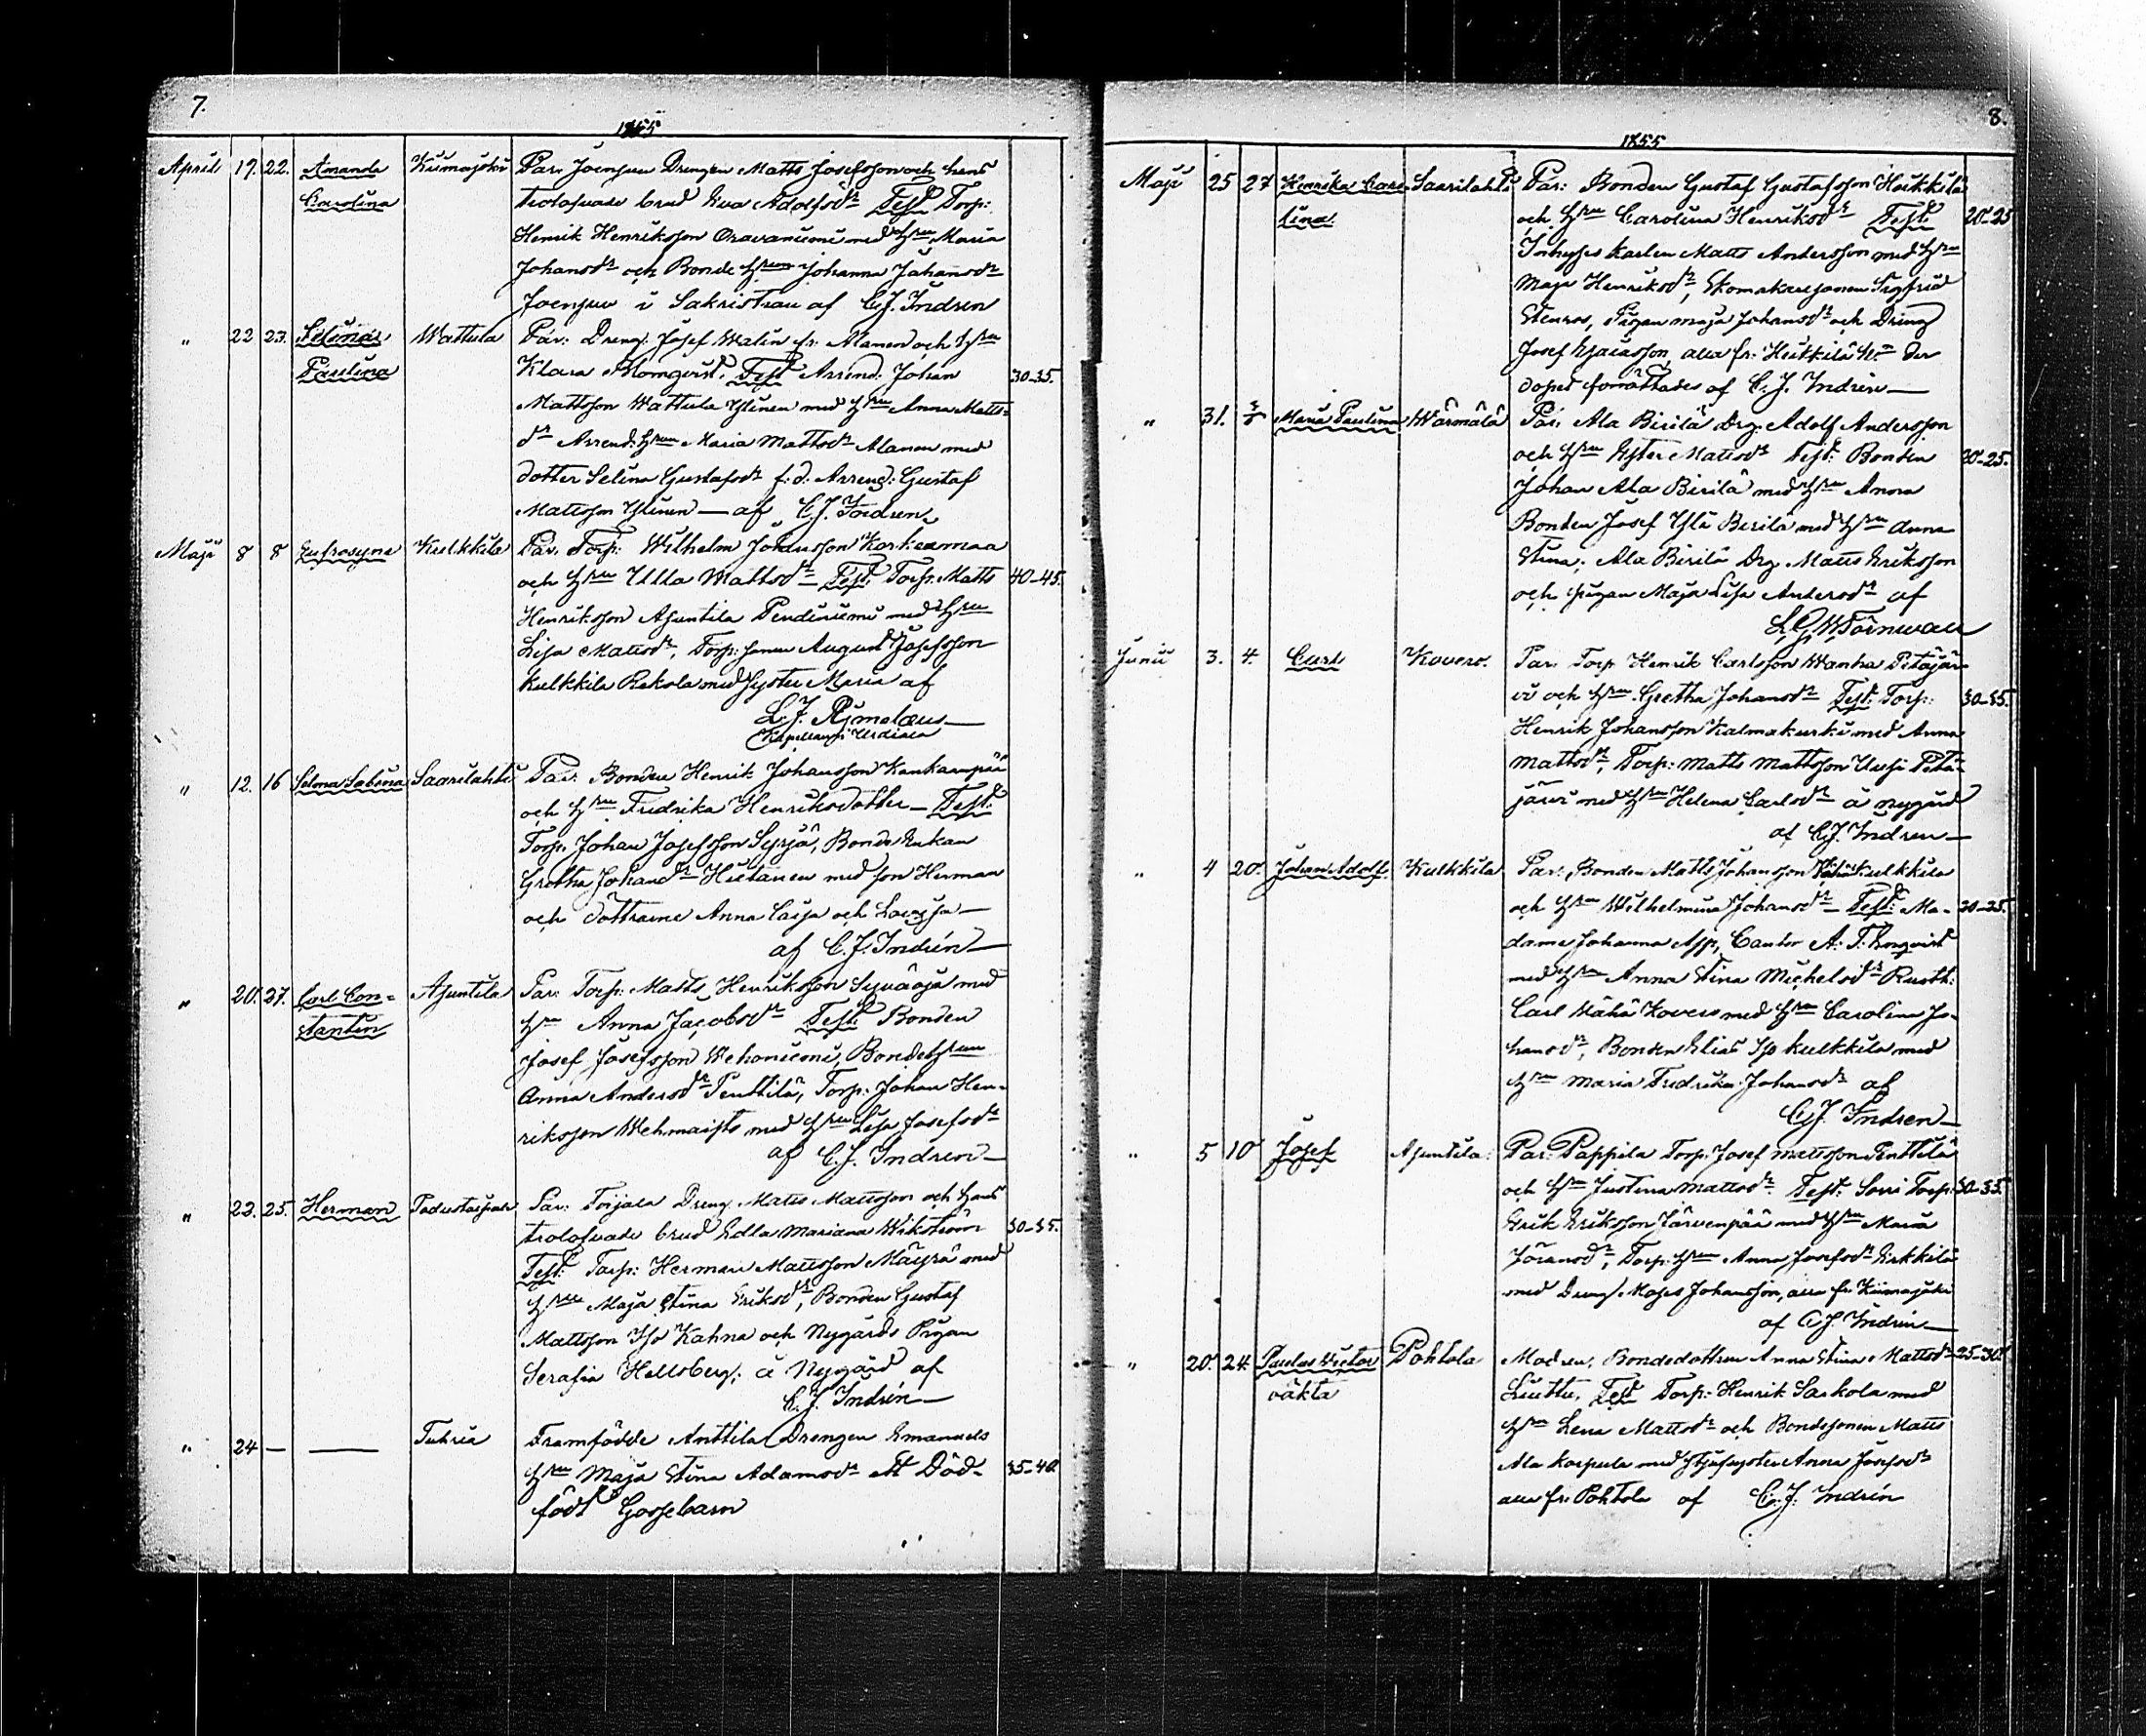 7.
1855
April 19. 22. Amanda Kiimajoki Par: Joensuu Drengen Matts Josefsson och hans
Carolina trolofvade brud Eva Adolfsdr Test: Torp:
Henrik Henriksson Oravaniemi med Hru Maria
Johansdr och Bonde Hrun Johanna Johansdr
Joensuu i Sakristian af C.J. Indren
" 22 23. Selina Wattula Par: Dreng: Josef Walin fr: Alanen och Hru
Paulina Klara Blomqvist. Test Arrend: Johan 30-35.
Mattsson Wattula Ylinen med Hru Anna Matts-
dr Arrend: Hrun Maria Mattsdr Alanen med
dotter Selina Gustafsdr f:d: Arrend: Gustaf
Mattsson Ylinen — af C.J. Indren
Maji 8 8 Eufrosyne Kulkkila Par. Torp: Wilhelm Johansson Korkeamaa
och Hru Ulla Mattsdr Test: Torp. Matts 40-45.
Henriksson Ajuntila Pendiniemi med Hru
Lisa Mattsdr, Torp: sonen August Josefsson
Kulkkila Rekola med Syster Maria af
L.J. Rymelæus
Kapellan i Urdiala
" 12. 16 Selma Sabina Saarilahti Par: Bonden Henrik Johansson Kankaanpää
och Hru Fredrika Henriksdotter — Test:
Torp. Johan Josefsson Syrjä, Bonde Enkan
Gretha Johansdr Hietanen med son Herman
och döttrarne Anna Caisa och Lovisa —
af C.J. Indrén —
" 20. 27. Carl Con- Ajuntila Par: Torp: Matts Henriksson Syväoja med
stantin Hru Anna Jacobsdr Test: Bonden
Josef Josefsson Wehoniemi, Bonde Hrun
Anna Andersdr Penttilä, Torp: Johan Hen-
riksson Wehmaisto med Hru Lisa Josefsdr
af C.J. Indren —
" 22. 25. Herman Par: Torjala Dreng Matts Mattsson och hans
trolofvade brud Edla Mariana Wikström 30-35.
Test: Torp: Herman Mattsson Mäyrä med
Hru Maja Stina Eriksdr, Bonden Gustaf
Mattsson Iso Kahna och Nygårds Pigan
Serafia Hellsberg; å Nygård af
C.J. Indrén —
" 24 — — Tuhria Framfödde Anttila Drengen Emanuels
Hru Maja Stina Adamsdr ett Död- 35-40
födt Gossebarn
8.
1855
Maji 25 27 Henrika Caro- Saarilahti Par: Bonden Gustaf Gustafsson Heikkilä
lina och Hru Carolina Henriksdr Test: 20-25
Inhyses karlen Matts Andersson med Hru
Maja Henriksdr, Skomakaresonen Sigfrid
Stenros, Pigan Maja Johansdr och Dreng
Josef Esaiasson, alla fr: Heikkilä der
dopet förrättades af C.J. Indrén —
" 31. Maria Paulina Wärmälä Par: Ala Birilä Drg. Adolf Andersson
och Hru Ester Mattsdr Test: Bonden 20-25.
Johan Ala Birilä med Hru Anna
Bonden Josef Yli Birilä med Hru Anna
Stina; Ala Birilä Drg Matts Eriksson
och pigan Maja Lisa Andersdr af
L.G. W Törnwall
Junii 3. 4. Curt Kovero. Par: Torp Henrik Carlsson Wanha Petäjär-
vi och Hru Gretha Johansdr Test: Torp: 30-35.
Henrik Johansson Kalmakurki med Anna
Mattsdr, Torp: Matts Mattsson Uusi Petä-
järvi med Hru Helena Carlsdr å Nygård
af C.J. Indren —
" 4 20. Johan Adolf. Kulkkila Par: Bonden Matts Johansson Vähä Kulkkila
och Hru Wilhelmina Johansdr — Test: Ma- 30-35.
dame Johanna App, Cantor A. F. Enqvist
med Hru Anna Stina Michelsdr Rusth:
Carl Vähä Kovero med Hru Carolina Jo-
hansdr, Bonden Elias Iso Kulkkila med
Hru Maria Fredrika Johansdr af
C.J. Indren —
" 5 10 Josef Ajuntila: Par: Pappila Torp. Josef Mattsson Penttilä
och Hru Justina Mattsdr. Test: Sorri Torp: 30-35.
Erik Eriksson Järvenpää med Hru Maria
Göransdr, Torp. Hrun Anna Josefsdr Erkkilä
med Dreng Moses Johansson, alla fr. Kiimajoki
af C.J. Indrén —
" 20. 24. Paulus Victor Pohtola Modren, Bondedottren Anna Stina Mattsdr 25-30.
oäkta Test Torp: Henrik Sarkola med
Hru Lena Mattsdr och Bondesonen Matts
Ala Karpula med Styfsyster Anna Josefsdr
alla fr: Pohtola af C.J. Indrén